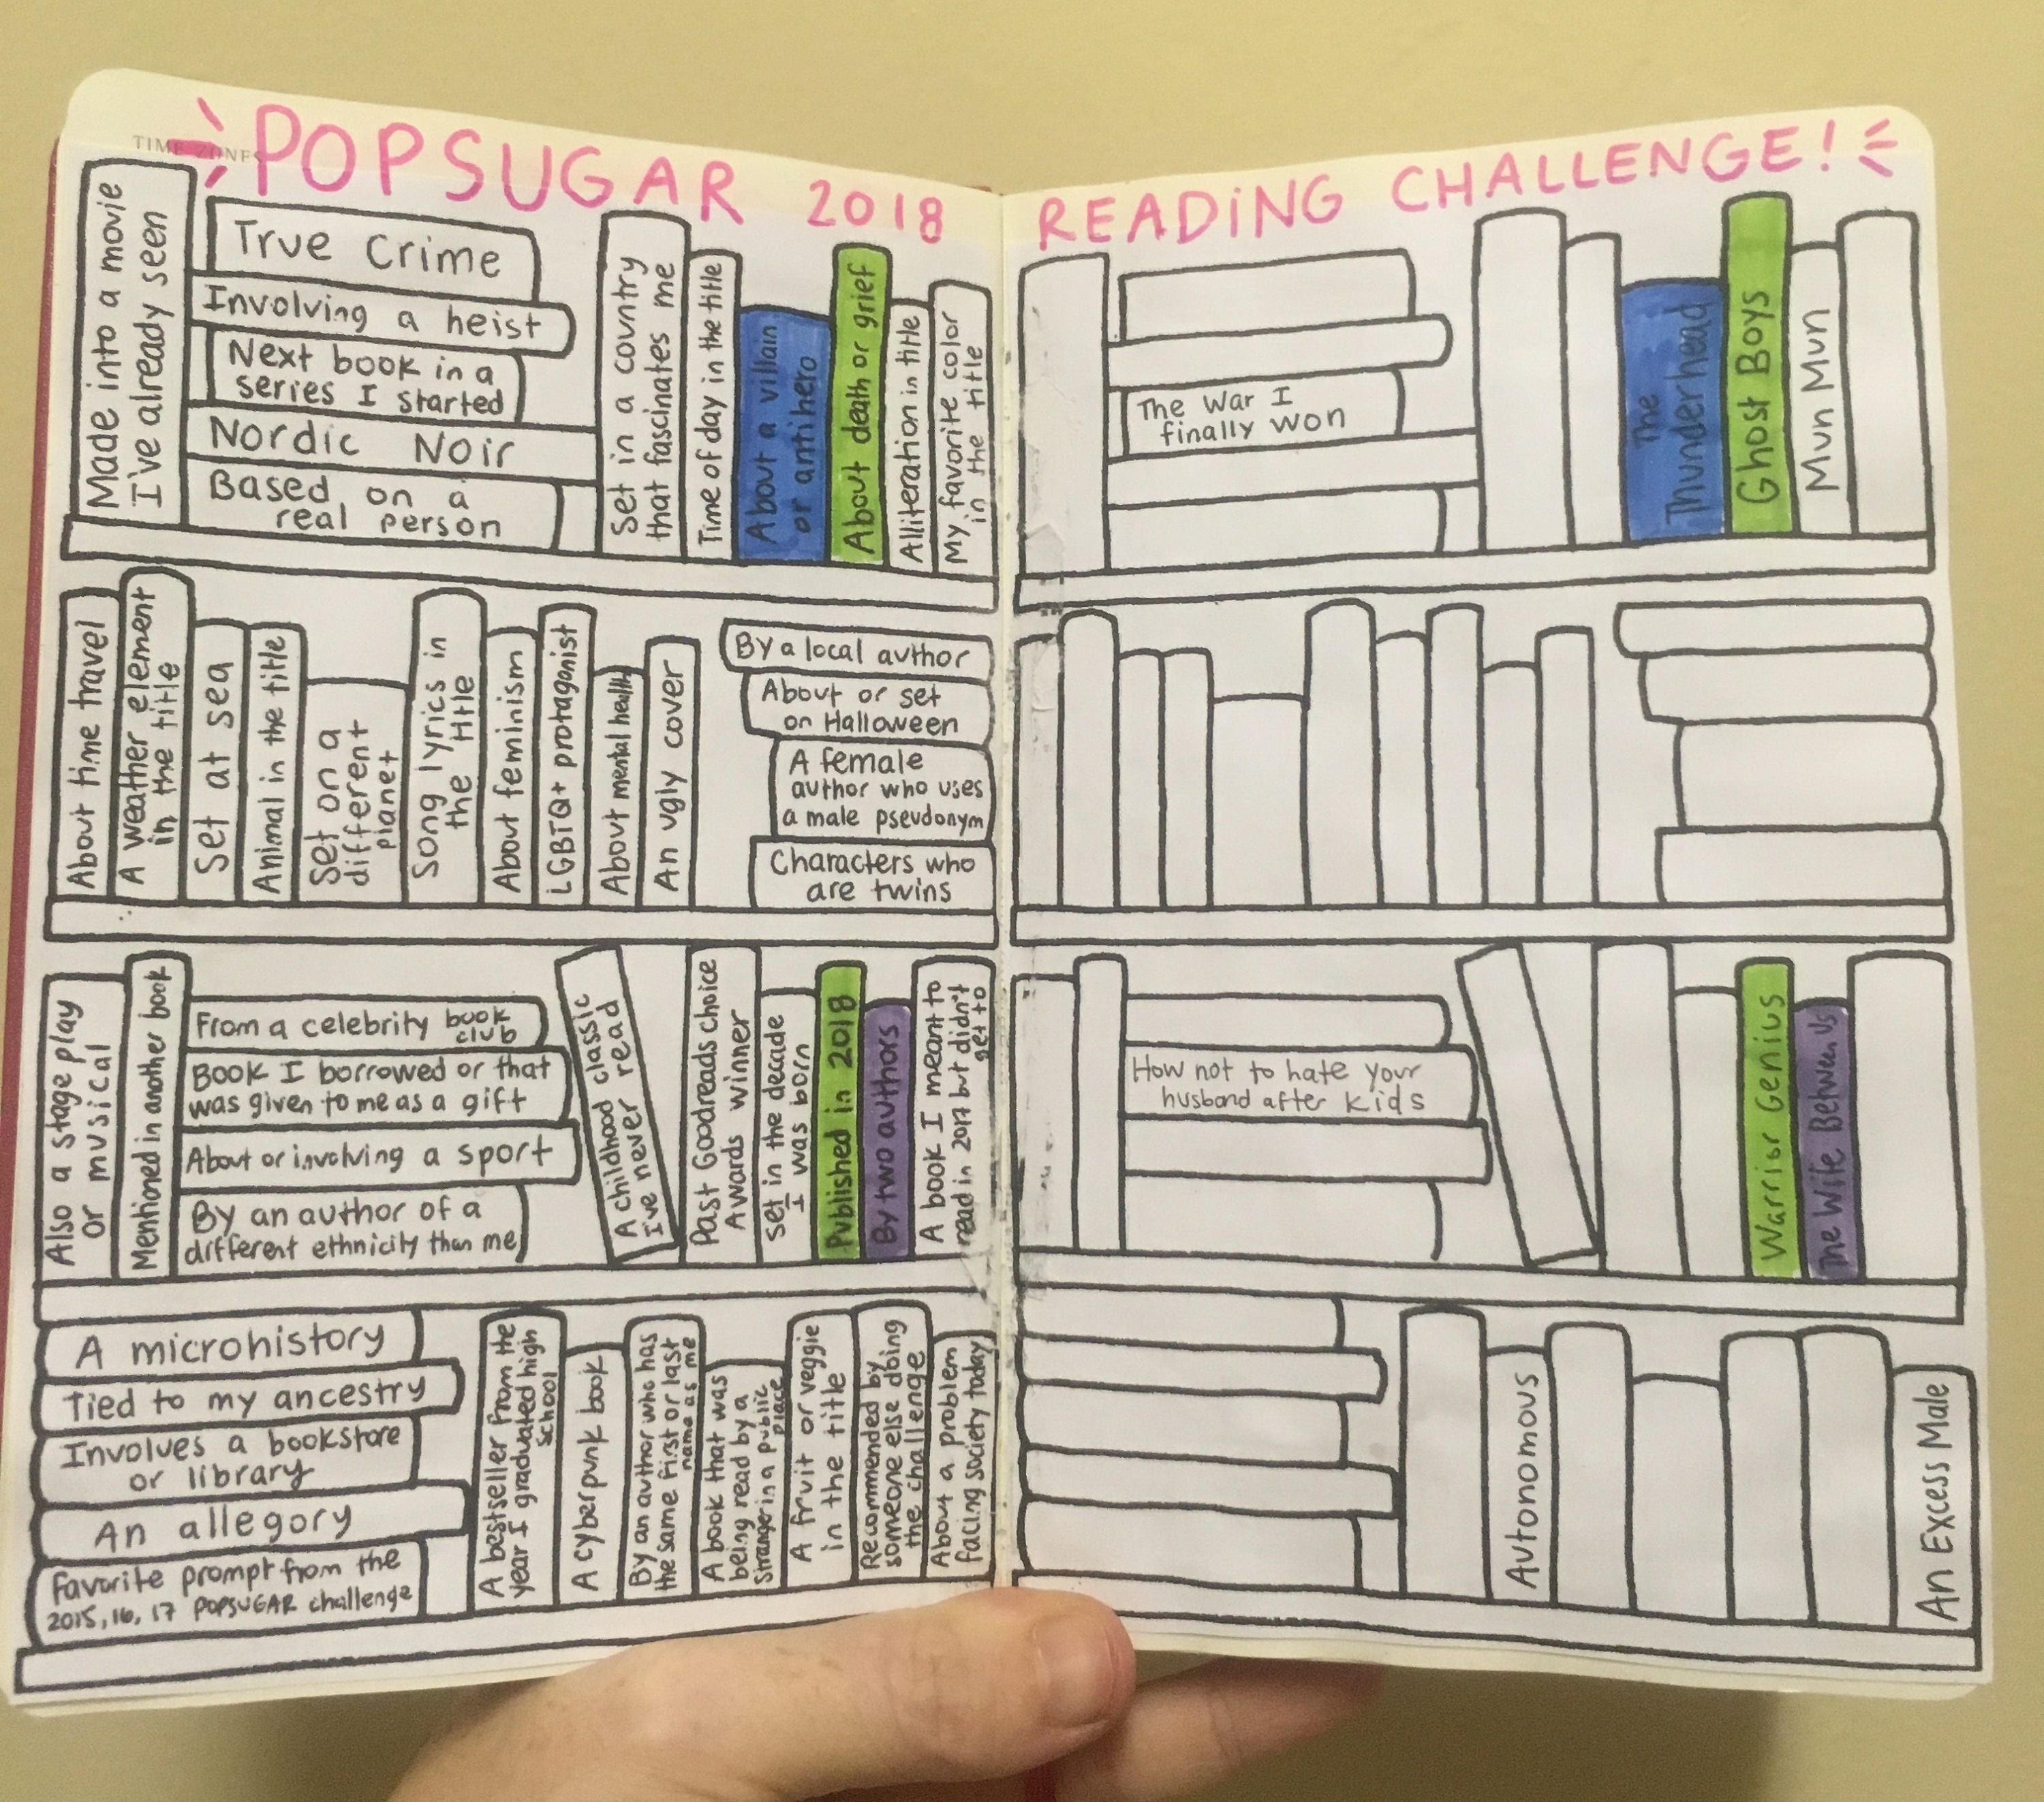 TIME ZONES
POPSUGAR 2018
READING CHALLENGE!
Made into a movie
I've already seen
True Crime
Involving a heist
Next book in a
series I started
Nordic Noir
Based on a
real person
Set in a country
that fascinates me
Time of day in the title
About a villain
or antihero
About death or grief
Alliteration in title
My favorite color
in the title
About time travel
A weather element
in the title
Set at sea
Animal in the title
Set on a
different
planet
Song lyrics in
the title
About feminism
LGBTQ+ protagonist
About mental health
An ugly cover
By a local author
About or set
on Halloween
A female
author who uses
a male pseudonym
Characters who
are twins
Also a stage play
or musical
Mentioned in another book
From a celebrity book
club
Book I borrowed or that
was given to me as a gift
About or involving a sport
By an author of a
different ethnicity than me
A childhood classic
I've never read
Past Goodreads Choice
Awards winner
Set in the decade
I was born
Published in 2018
By two authors
A book I meant to
read in 2017 but didn't
get to
A microhistory
Tied to my ancestry
Involves a bookstore
or library
An allegory
Favorite prompt from the
2015, 16, 17 POPSUGAR challenge
A bestseller from the
year I graduated high
school
A cyberpunk book
By an author who has
the same first or last
name as me
A book that was
being read by a
Stranger in a public
place
A fruit or veggie
in the title
Recommended by
someone else doing
the challenge
About a problem
facing society today
The War I
finally won
The
Thunderhead
Ghost Boys
Mun Mun
How not to hate your
husband after kids
Warrior Genius
The Wife Between Us
Autonomous
An Excess Male